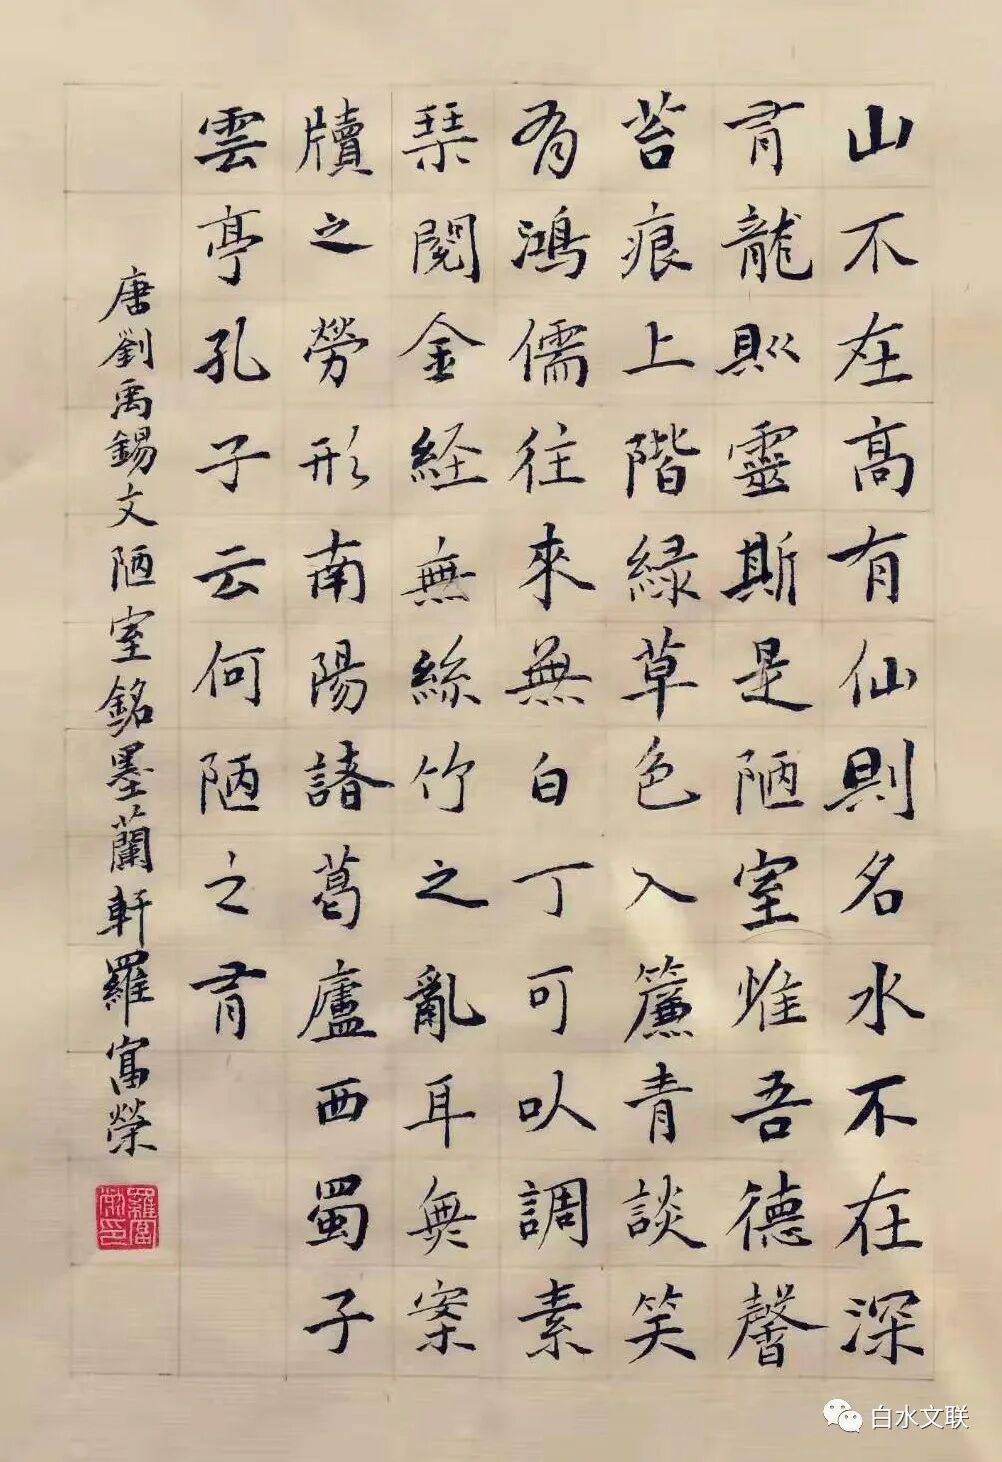 山不在高有仙則名水不在深
有龍則靈斯是陋室惟吾德馨
苔痕上階緑草色入簾青談笑
有鴻儒往來無白丁可以調素
琹閱金経無絲竹之亂耳無案
牘之勞形南陽諸葛廬西蜀子
雲亭孔子云何陋之有
唐劉禹錫文陋室銘墨蘭軒羅富榮
羅富榮印
白水文联